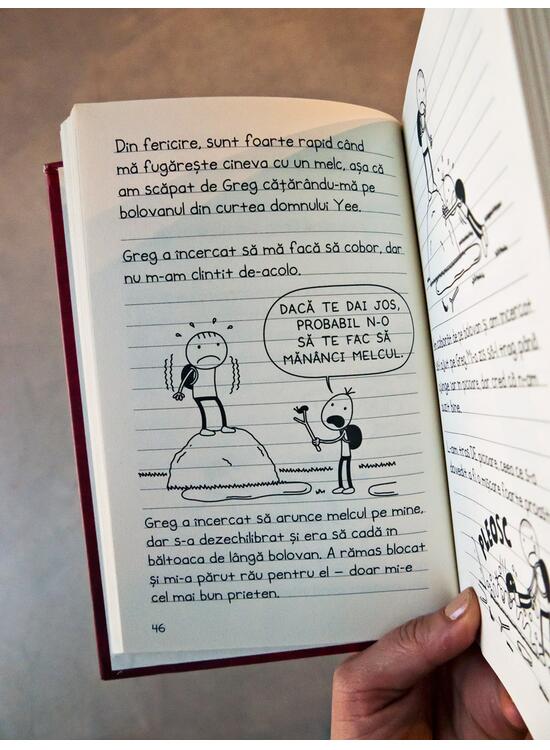 Din fericire, sunt foarte rapid când
mă fugărește cineva cu un melc, așa că
am scăpat de Greg cățărându-mă pe
bolovanul din curtea domnului Yee.
Greg a incercat să mă facă să cobor, dar
nu m-am clintit de-acolo.
DACĂ TE DAI JOS,
PROBABIL N-O
SĂ TE FAC SĂ
MĂNÂNCI MELCUL.
Greg a incercat să arunce melcul pe mine,
dar s-a dezechilibrat și era să cadă in
băltoaca de lângă bolovan. A rămas blocat
și mi-a părut rău pentru el – doar mi-e
cel mai bun prieten.
46
de pe bolovan și am incercat
pe Greg. M-a
de picioare, dar cred că n-am
bine.
tras DE picioare, ceea ce s-a
dovedit a fi o mișcare foarte
PLEOSC